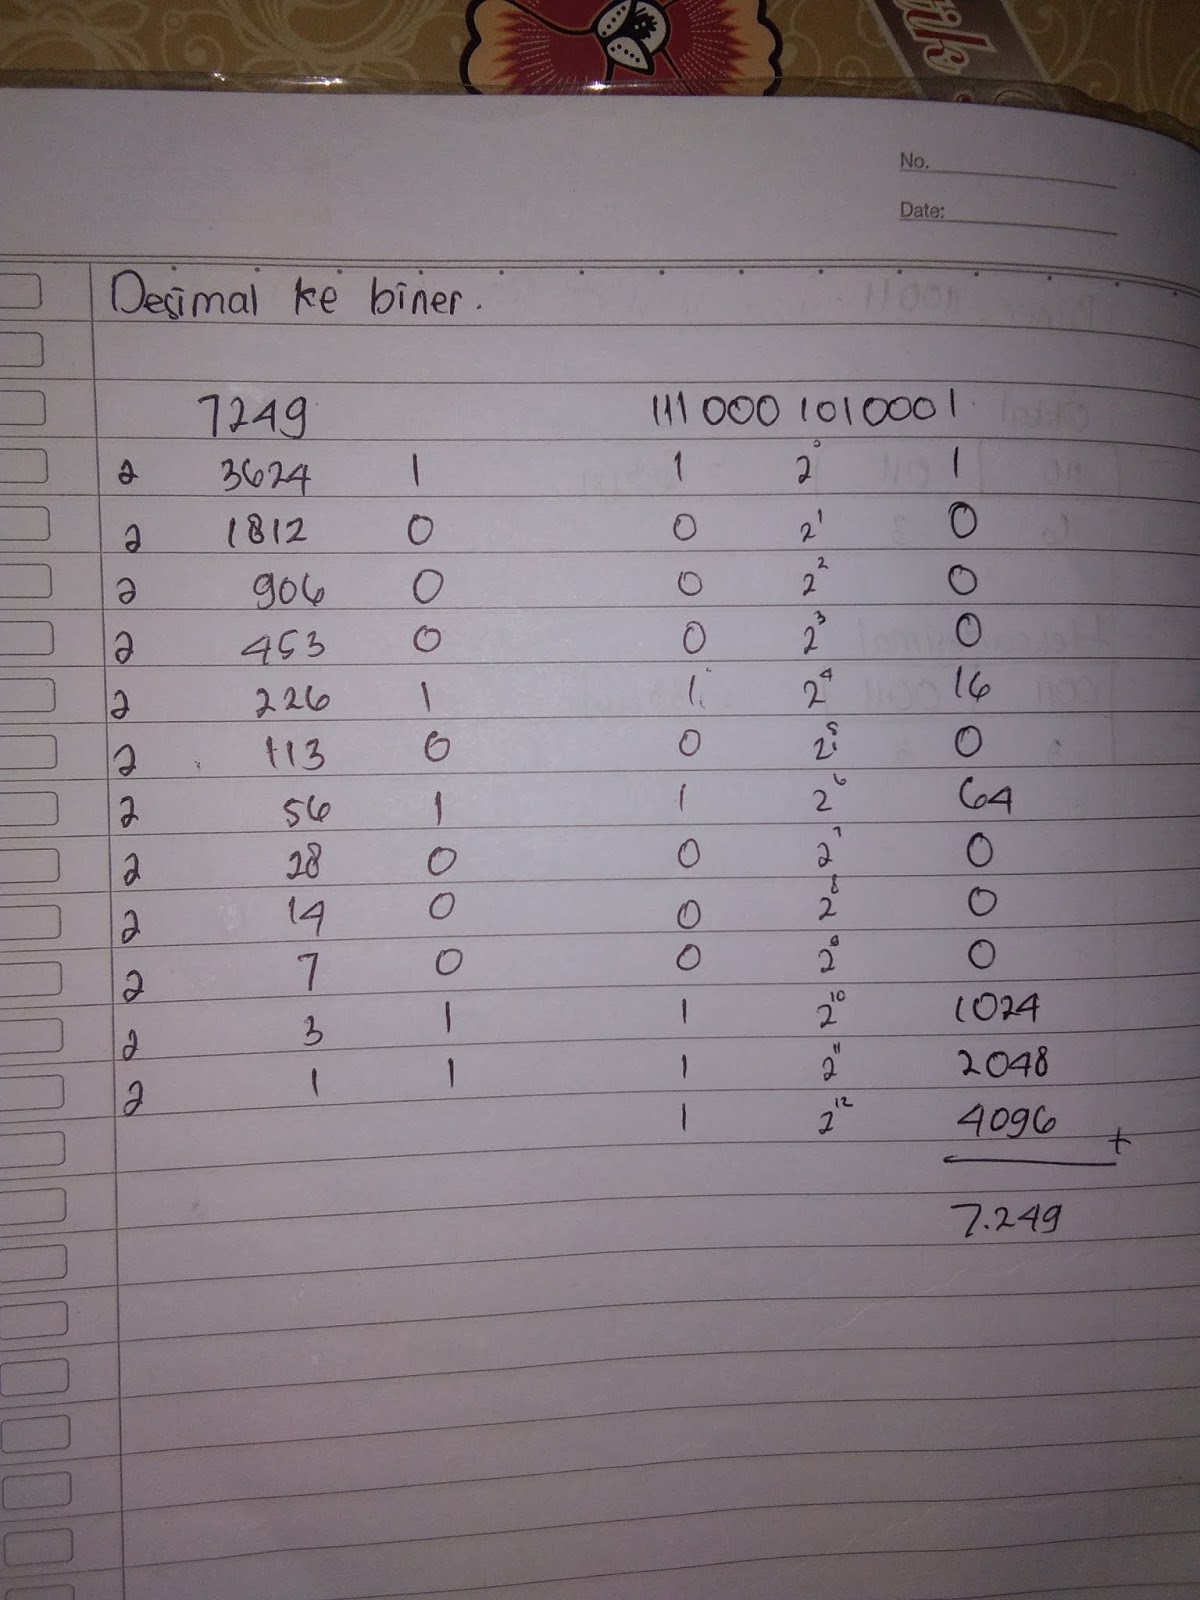 tik
No.
Date:
Desimal ke biner.
7249 1110001010001
2 3624 1 1 2⁰ 1
2 1812 0 0 2¹ 0
2 906 0 0 2² 0
2 453 0 0 2³ 0
2 226 1 1 2⁴ 16
2 113 0 0 2⁵ 0
2 56 1 1 2⁶ 64
2 28 0 0 2⁷ 0
2 14 0 0 2⁸ 0
2 7 0 0 2⁹ 0
2 3 1 1 2¹⁰ 1024
2 1 1 1 2¹¹ 2048
1 2¹² 4096 +
7.249